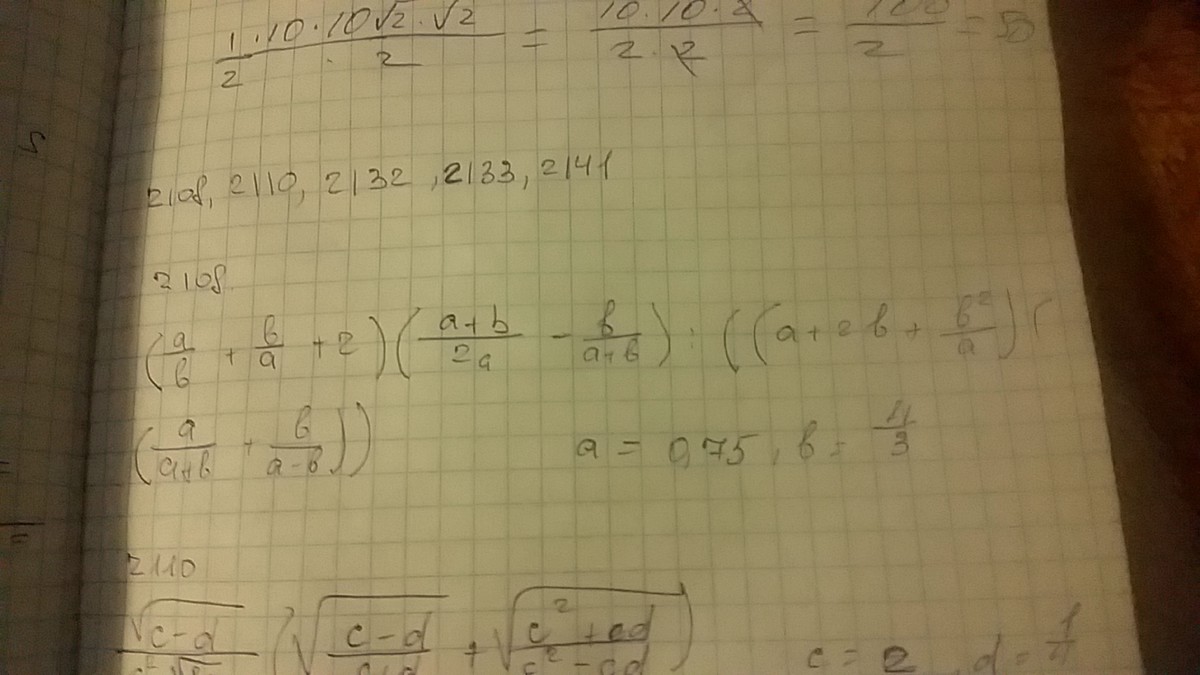 1/2 · 10 · 10√2 · √2/2 = 10·10·2/2·2 = 100/2 = 50
2108, 2110, 2132, 2133, 2141
2108.
(a/b + b/a + 2)(a+b/2a - b/a+b) : ((a+2b+ b²/a)(
(a/a+b + b/a-b)) a = 0,75, b = 4/3
2110
√c-d (√c-d + √c²+cd/c²-cd) c = 2, d = 1/4
5